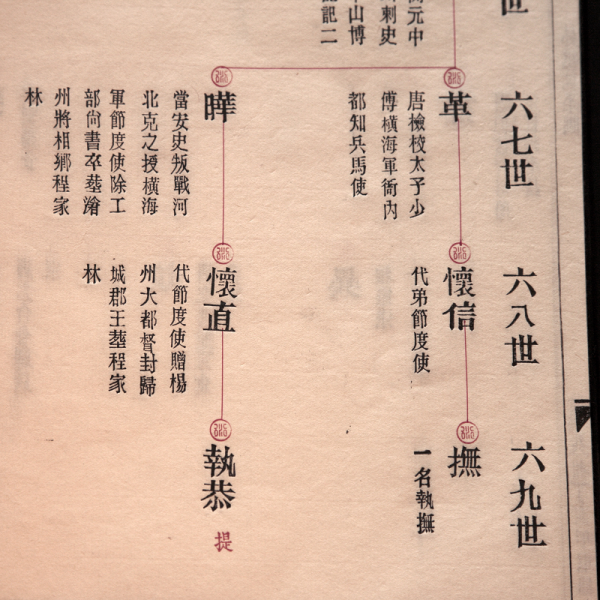 世
元中
刺史
山博
記二
六七世
革
唐檢校太子少
傅橫海軍衙內
都知兵馬使
曄
當安史叛戰河
北克之授橫海
軍節度使除工
部尚書卒塟瀋
州將相鄉程家
林
六八世
懷信
代弟節度使
懷直
代節度使贈楊
州大都督封歸
城郡王塟程家
林
六九世
撫
一名執撫
執恭
提